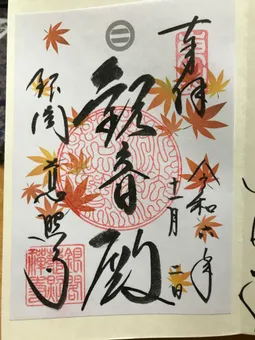 奉拝
令和六年
十一月二日
観音殿
銀閣
慈照寺